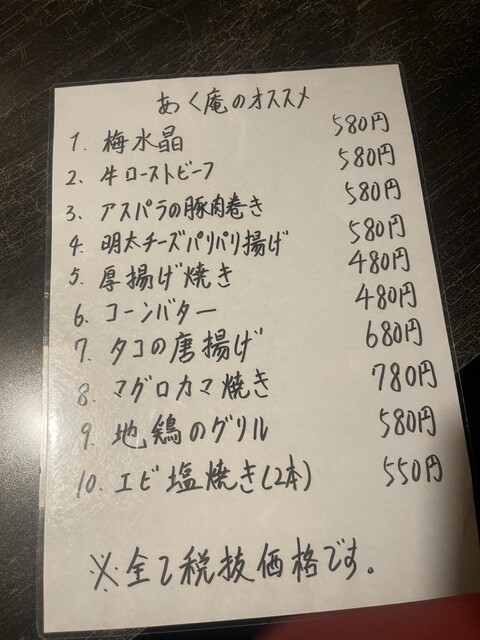 あく庵のオススメ
1. 梅水晶 580円
2. 牛ローストビーフ 580円
3. アスパラの豚肉巻き 580円
4. 明太チーズパリパリ揚げ 580円
5. 厚揚げ焼き 480円
6. コーンバター 480円
7. タコの唐揚げ 680円
8. マグロカマ焼き 780円
9. 地鶏のグリル 580円
10. エビ塩焼き(2本) 550円
※全て税抜価格です。